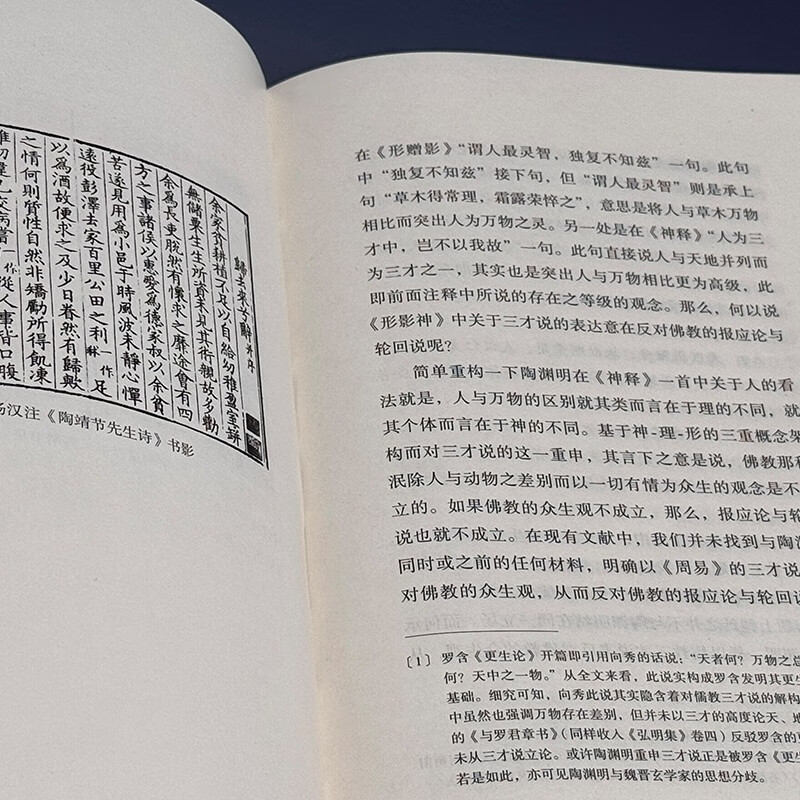 歸去來兮辭并序
余家貧耕植不足以自給幼稚盈室缾
無儲粟生生所資未見其術親故多勸
余爲長吏脫然有懷求之靡途會有四
方之事諸侯以惠愛爲德家叔以余貧
苦遂見用爲小邑于時風波未靜心憚
遠役彭澤去家百里公田之利一作秫足
以爲酒故便求之及少日眷然有歸歟
之情何則質性自然非矯勵所得飢凍
雖切違己交病嘗一作從人事皆口腹
汤汉注《陶靖节先生诗》书影
在《形赠影》“谓人最灵智，独复不知兹”一句。此句
中“独复不知兹”接下句，但“谓人最灵智”则是承上
句“草木得常理，霜露荣悴之”，意思是将人与草木万物
相比而突出人为万物之灵。另一处是在《神释》“人为三
才中，岂不以我故”一句。此句直接说人与天地并列而
为三才之一，其实也是突出人与万物相比更为高级，此
即前面注释中所说的存在之等级的观念。那么，何以说
《形影神》中关于三才说的表达意在反对佛教的报应论与
轮回说呢？
简单重构一下陶渊明在《神释》一首中关于人的看
法就是，人与万物的区别就其类而言在于理的不同，就
其个体而言在于神的不同。基于神-理-形的三重概念架
构而对三才说的这一重申，其言下之意是说，佛教那种
泯除人与动物之差别而以一切有情为众生的观念是不
立的。如果佛教的众生观不成立，那么，报应论与轮
说也就不成立。在现有文献中，我们并未找到与陶渊
同时或之前的任何材料，明确以《周易》的三才说
对佛教的众生观，从而反对佛教的报应论与轮回说
［1］ 罗含《更生论》开篇即引用向秀的话说：“天者何？万物之总
何？天中之一物。”从全文来看，此说实构成罗含发明其更生
基础。细究可知，向秀此说其实隐含着对儒教三才说的解构
中虽然也强调万物存在差别，但并未以三才的高度论天、地
的《与罗君章书》（同样收入《弘明集》卷四）反驳罗含的更
未从三才说立论。或许陶渊明重申三才说正是被罗含《更生
若是如此，亦可见陶渊明与魏晋玄学家的思想分歧。